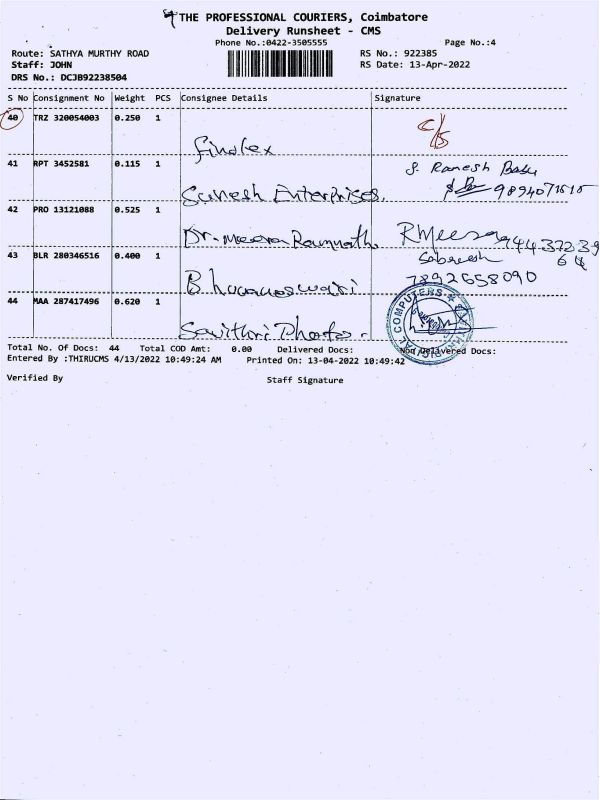 THE PROFESSIONAL COURIERS, Coimbatore
Delivery Runsheet - CMS
Phone No.:0422-3505555 Page No.:4
Route: SATHYA MURTHY ROAD RS No.: 922385
Staff: JOHN RS Date: 13-Apr-2022
DRS No.: DCJB92238504
S No Consignment No Weight PCS Consignee Details Signature
40 TRZ 320054003 0.250 1 Finolex
41 RPT 3452581 0.115 1 Suresh Enterprises. S. Ramesh Babu
42 PRO 13121088 0.525 1 Dr. Meera Ramnath
43 BLR 280346516 0.400 1 Bhuvaneswari Sabareesh
7892658090
44 MAA 287417496 0.620 1 Savithri COMPUTERS
Total No. Of Docs: 44 Total COD Amt: 0.00 Delivered Docs: Non Delivered Docs:
Entered By :THIRUCMS 4/13/2022 10:49:24 AM Printed On: 13-04-2022 10:49:42
Verified By Staff Signature